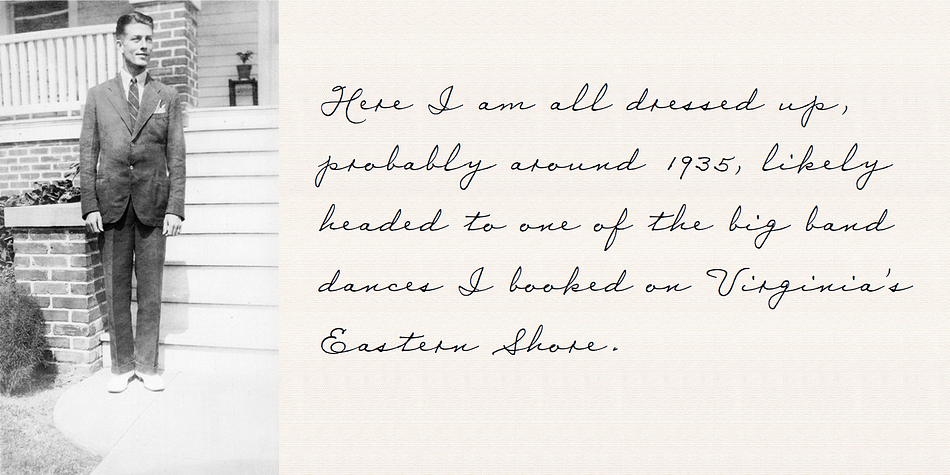 Here I am all dressed up,
probably around 1935, likely
headed to one of the big band
dances I booked on Virginia's
Eastern Shore.